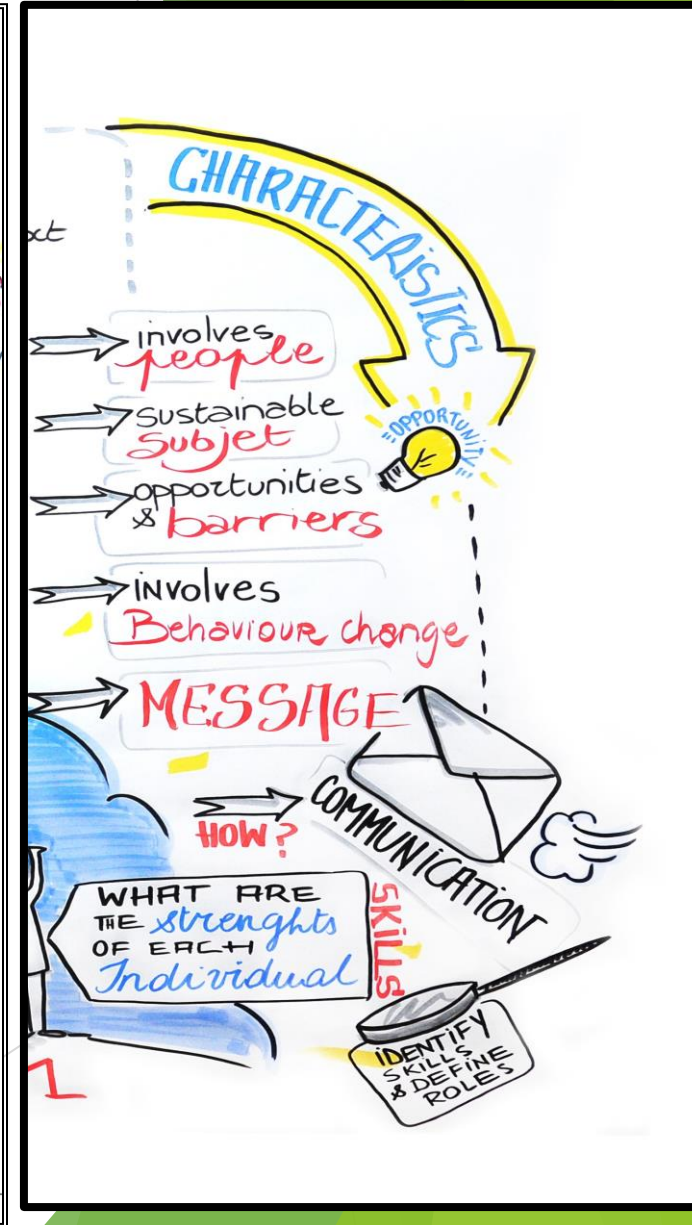 CHARACTERISTICS
involves
people
sustainable
subjet
"OPPORTUNITY"
opportunities
& barriers
involves
Behaviour change
MESSAGE
HOW?
COMMUNICATION
WHAT ARE
THE strenghts
OF EACH
Individual
SKILLS
IDENTIFY
SKILLS
& DEFINE
ROLES
1